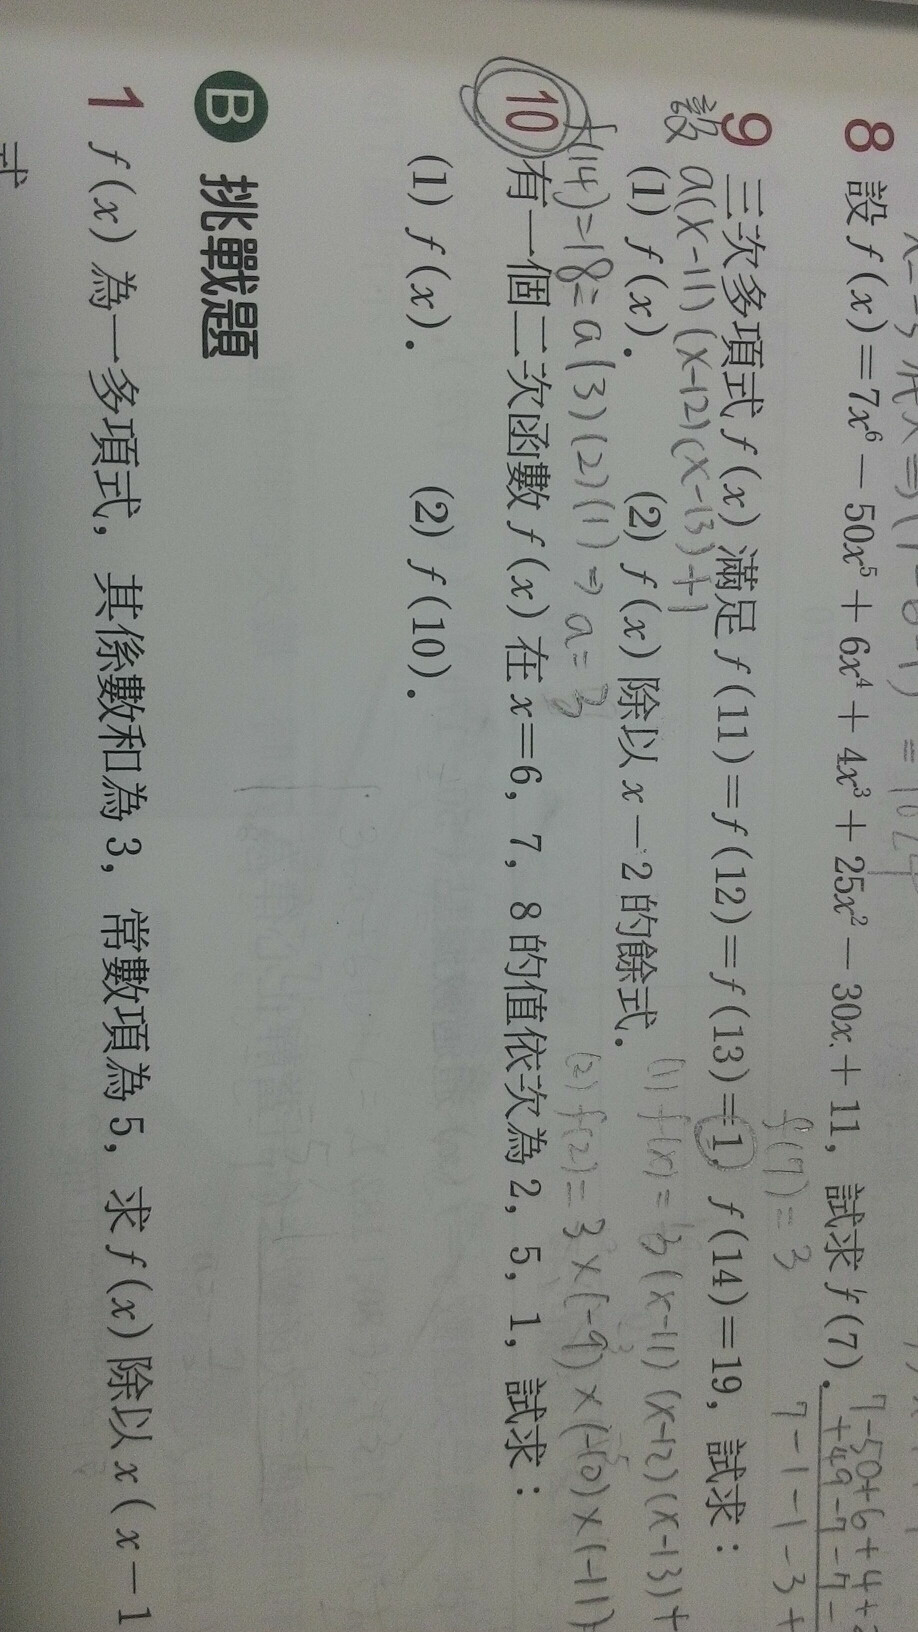 8 設 f(x)=7x⁶−50x⁵+6x⁴+4x³+25x²−30x+11, 試求 f(7).
f(7)=3
7-1-1-3+
9 三次多項式 f(x) 滿足 f(11)=f(12)=f(13)=1, f(14)=19, 試求：
設 a(x-11)(x-12)(x-13)+1
(1) f(x). (2) f(x) 除以 x−2 的餘式.
(1) f(x)=3(x-11)(x-12)(x-13)+
f(14)=18=a(3)(2)(1)⇒a=3
(2) f(2)=3×(-9)×(-10)×(-11)+
10 有一個二次函數 f(x) 在 x=6, 7, 8 的值依次為 2, 5, 1, 試求：
(1) f(x). (2) f(10).
B 挑戰題
1 f(x) 為一多項式, 其係數和為 3, 常數項為 5, 求 f(x) 除以 x(x−1
式